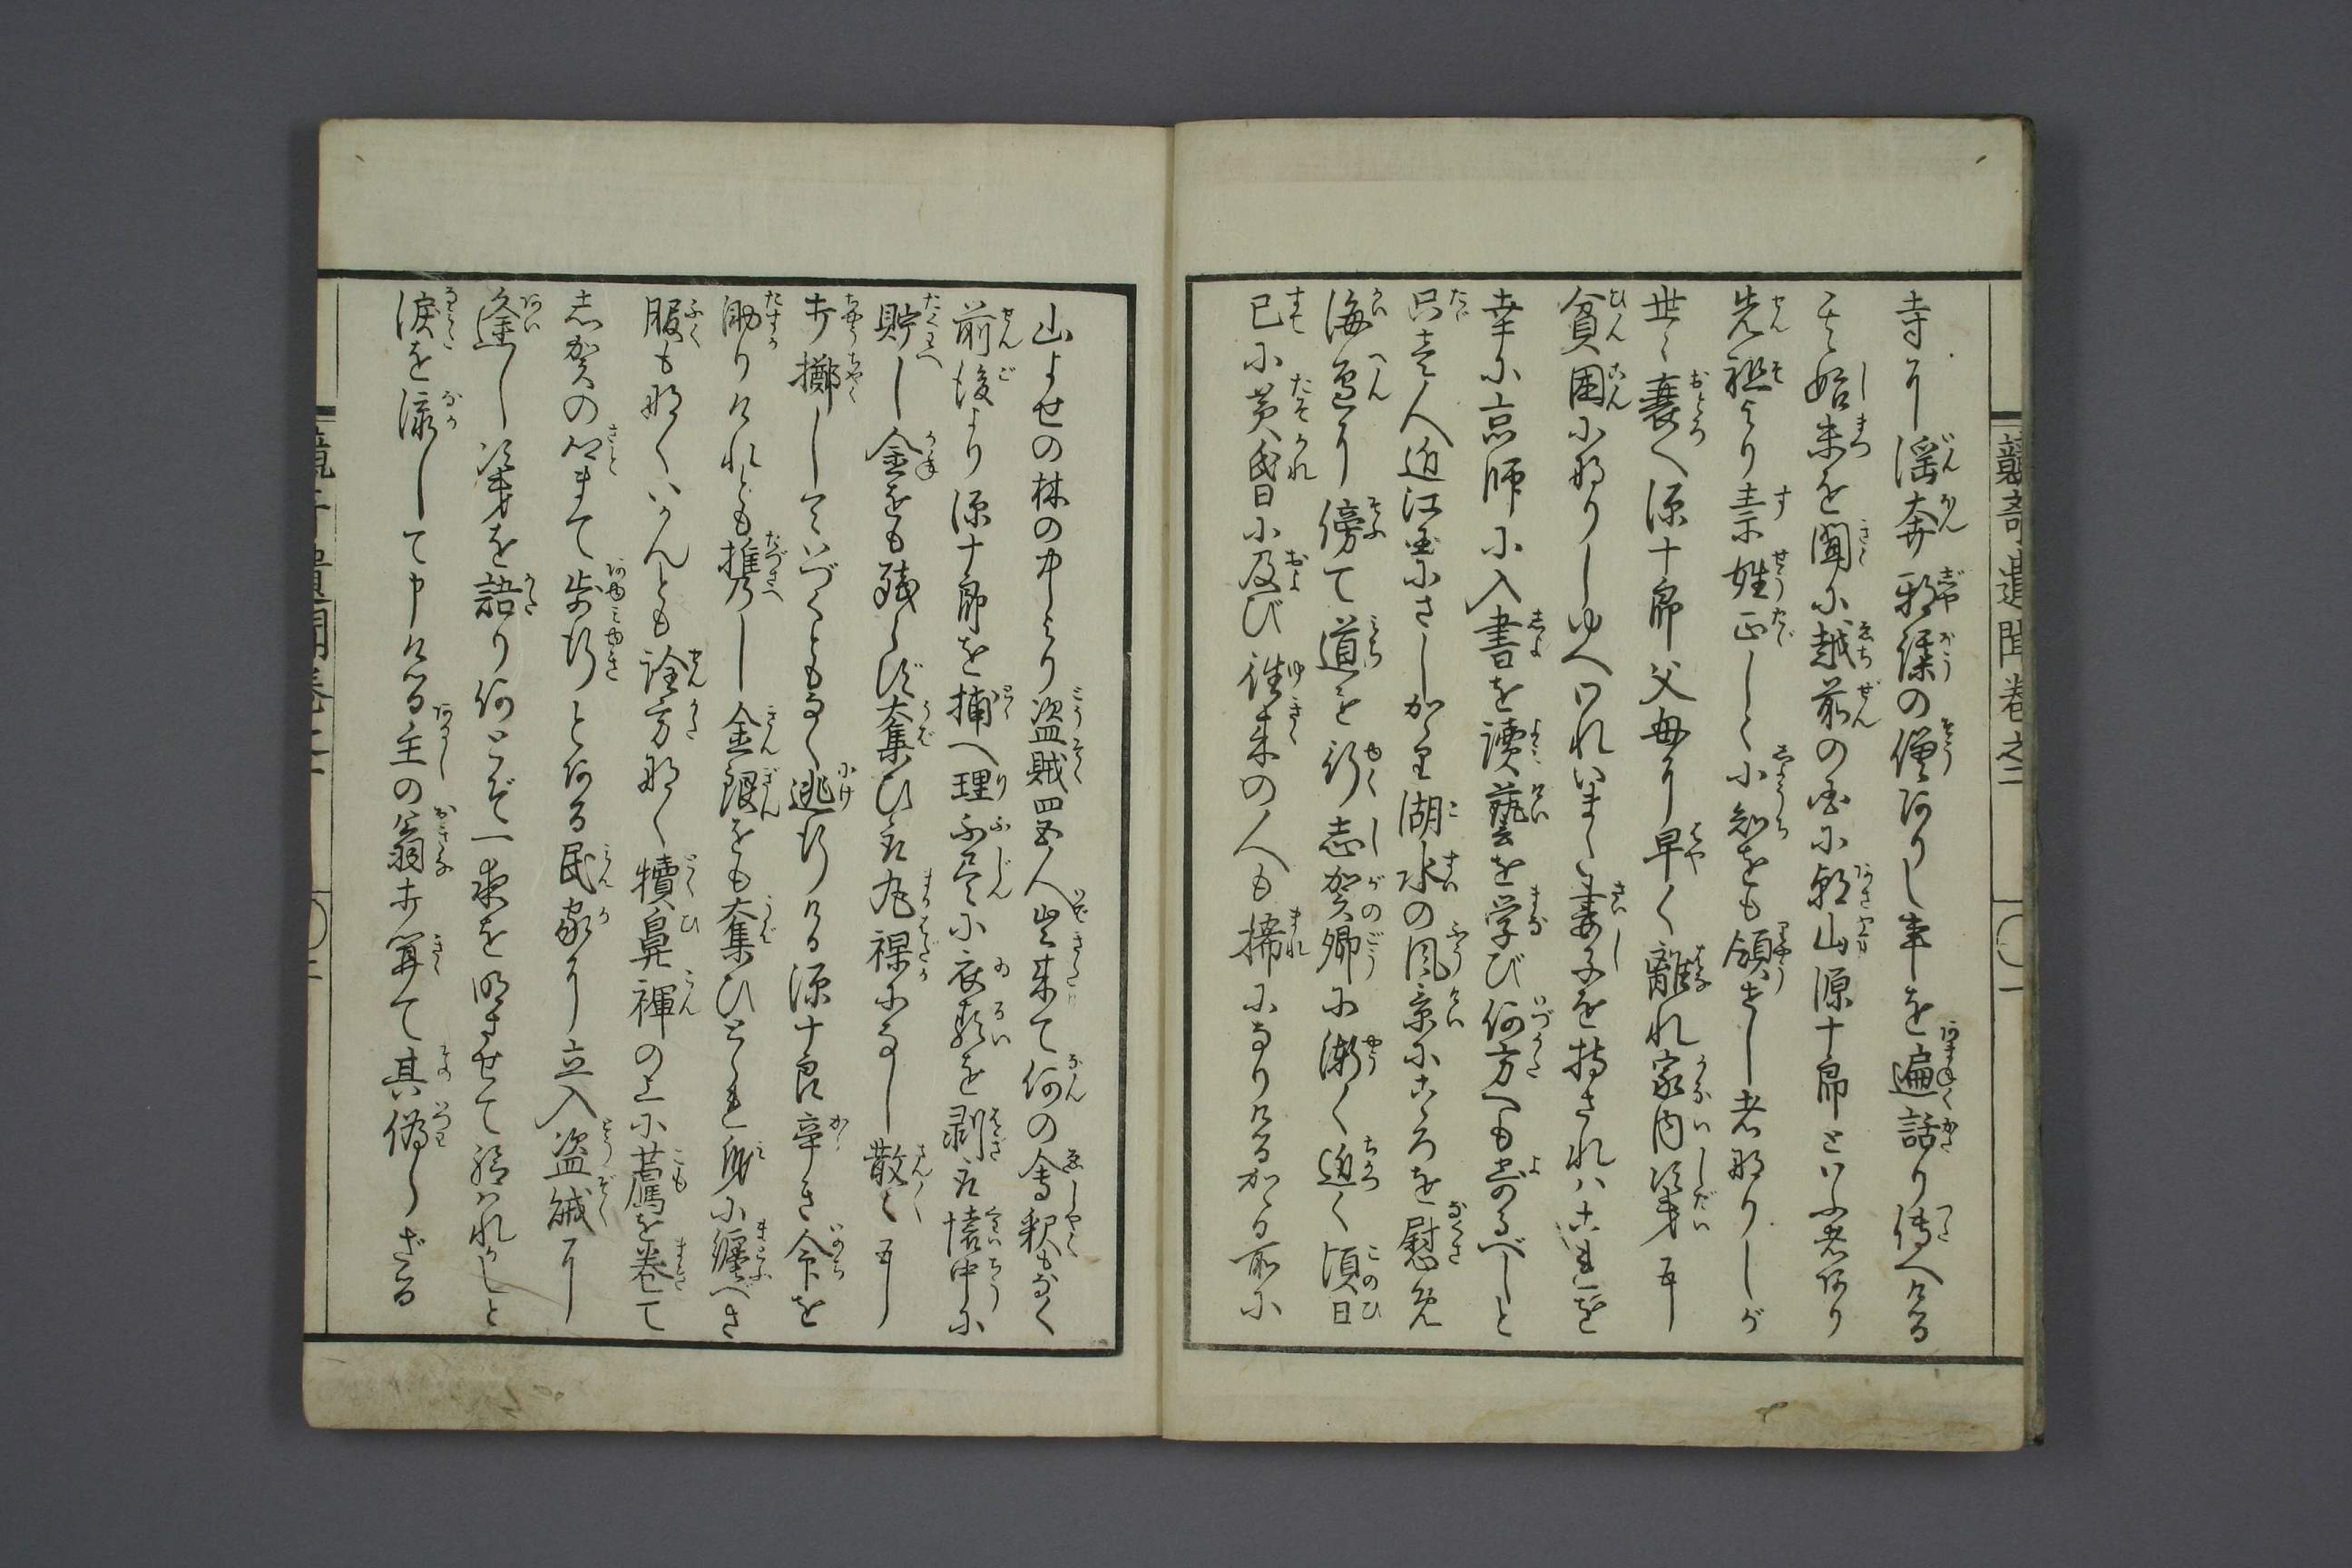 寺に淫奔邪婬の僧ありし事を遍話り傳へける
其始末を聞に越前の国に朝山源十郎といふ者あり
先祖より素姓正しく小知をも領せし者なりしが
世々衰へ源十郎父母に早く離れ家内次第に
貧困になりしゆへいまだ妻子を持されハこれを
幸に京師に入書を讀藝を学び何方へも出るべしと
只壱人近江国にさしかゝり湖水の風景にこゝろを慰免
海邉に傍て道を行志賀郷に漸く近く頃日
已に黄昏に及び往来の人も稀になりけるかゝる所に
山よせの林の中より盗賊四五人出来て何の會釈もなく
前後より源十郎を捕へ理不尽に衣類を剥取懐中に
貯へし金をも残らず奪ひ取丸裸になし散々に
打擲しいづくともなく逃行ける源十郎辛き命を
助りけれども携へし金銀をも奪ひとられ身に纏べき
服もなくいかんとも詮方なく犢鼻褌の上に薦を巻て
志賀の里まて歩行とある民家に立入盗賊に
逢し次第を語り何とぞ一夜を明させて給はれかしと
涙を流して申ける主の翁打聞て其偽らざる